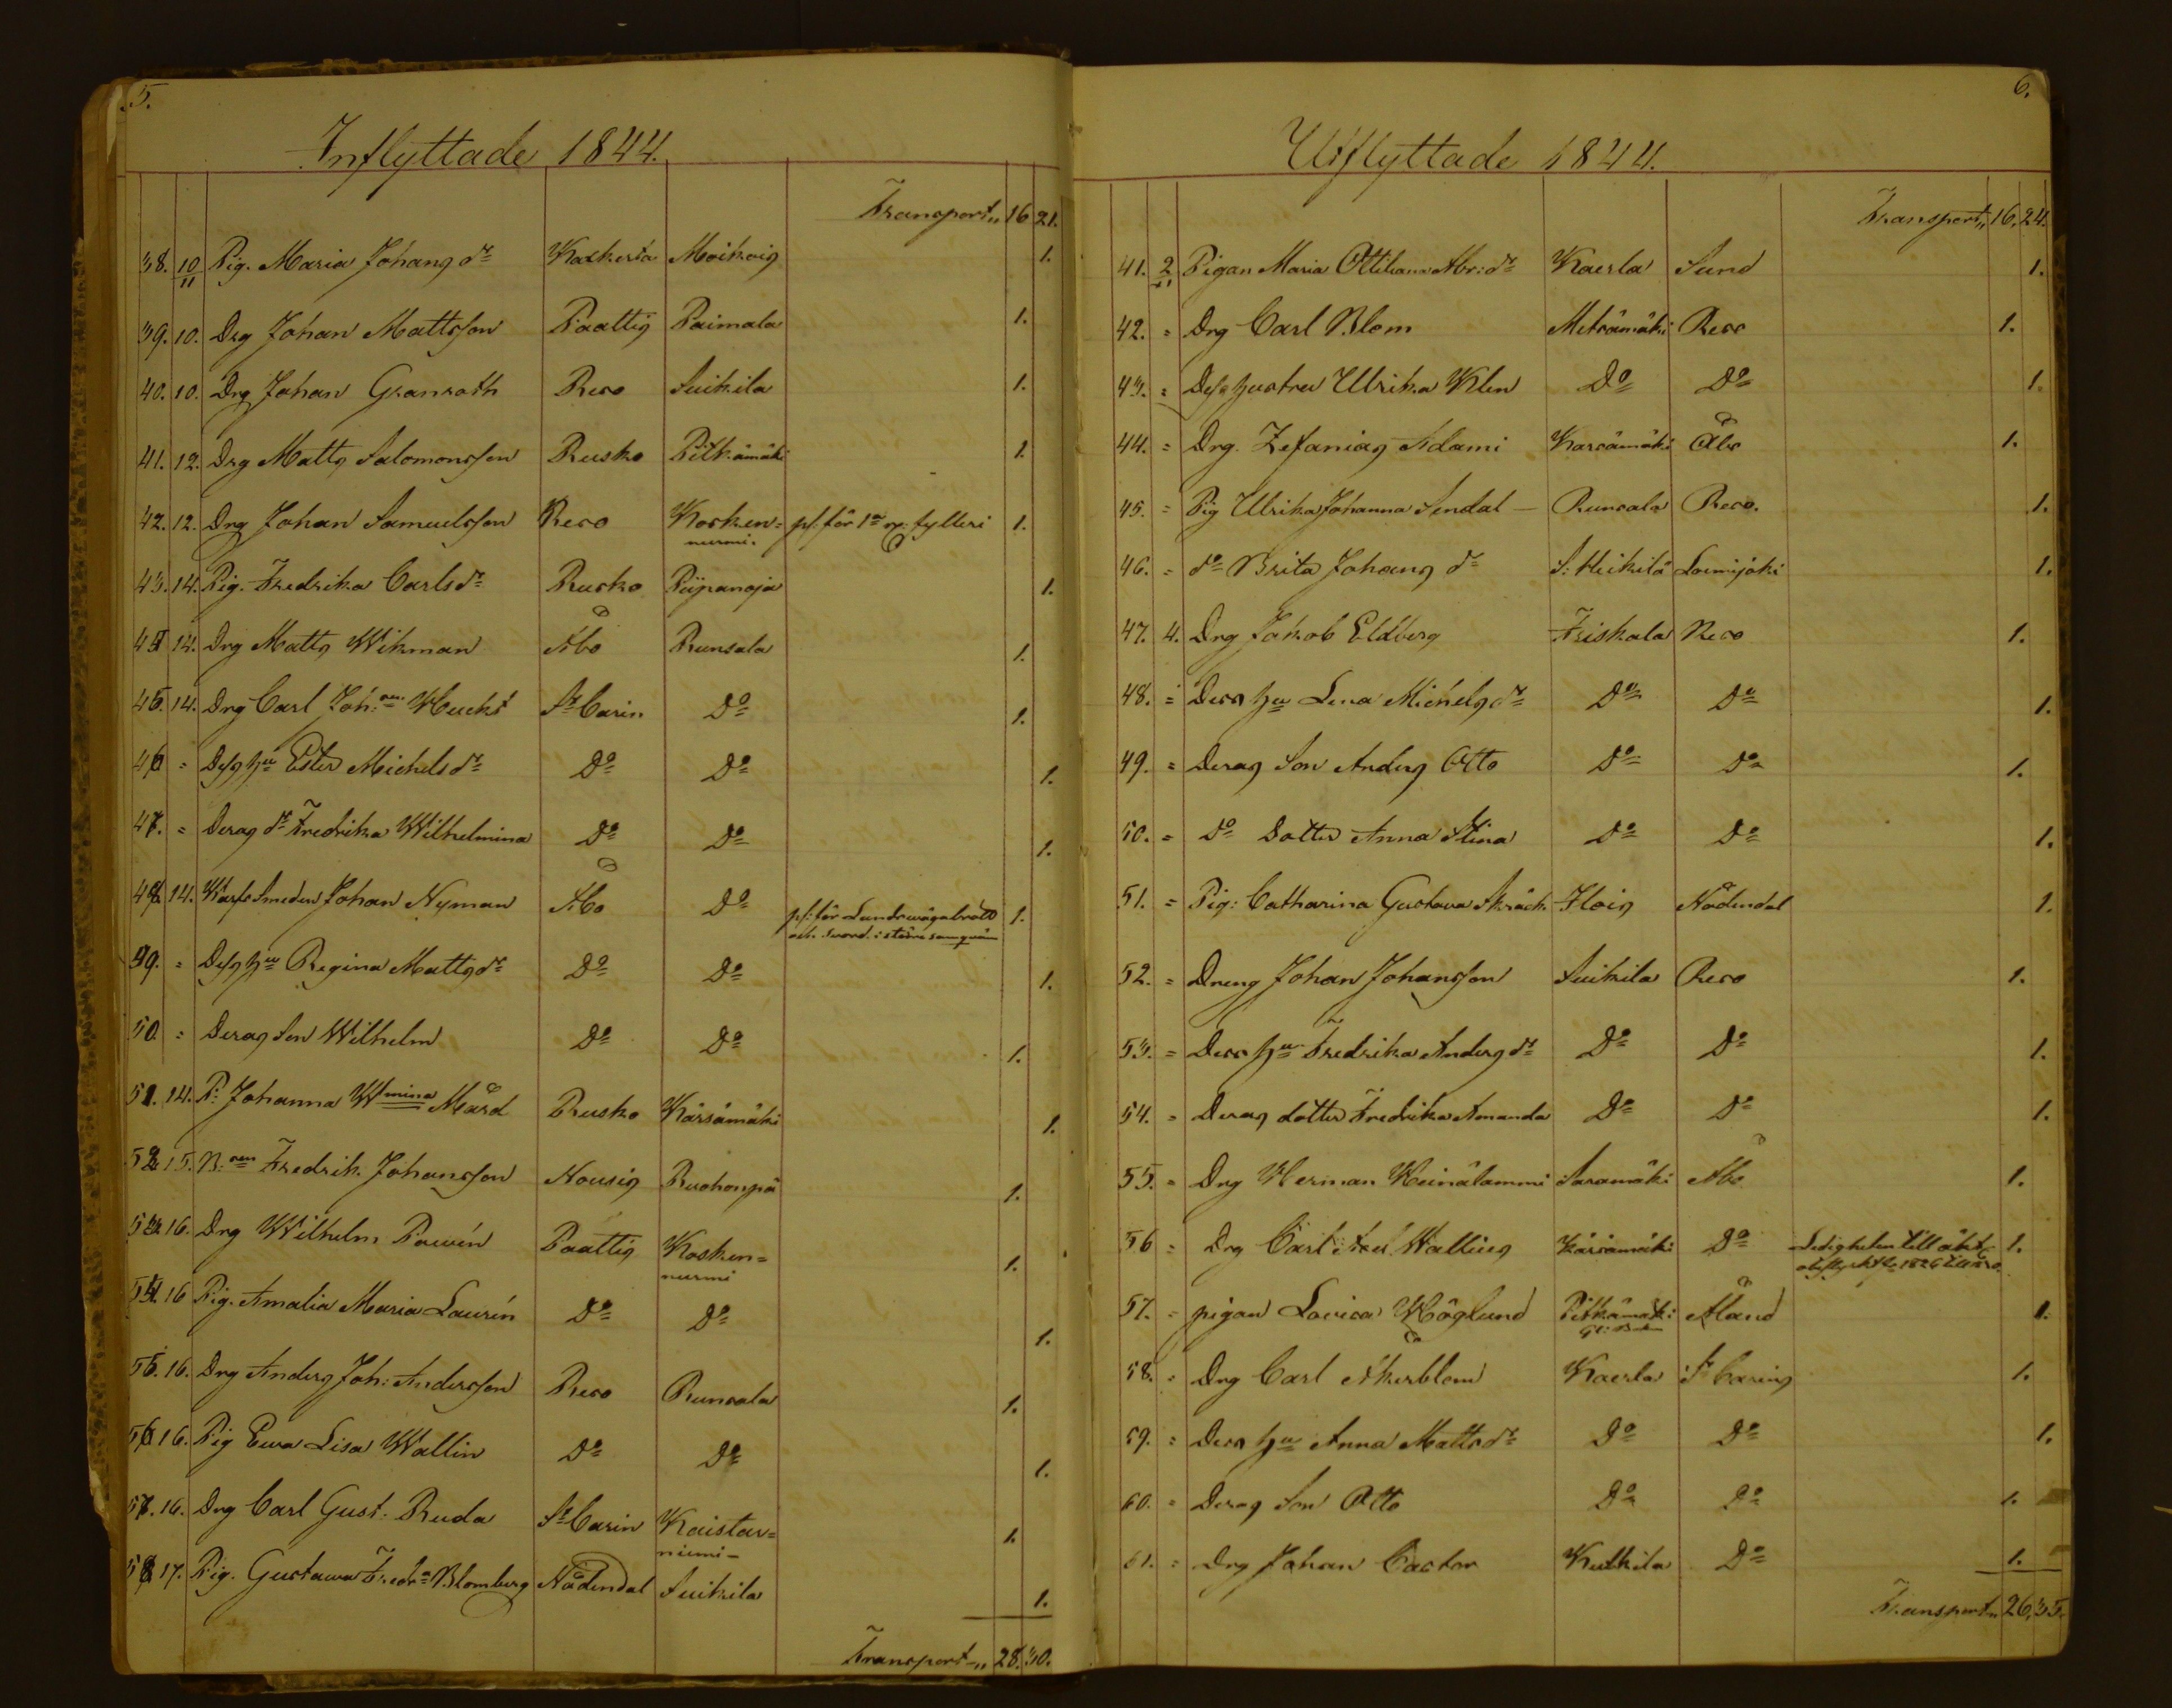 5.
Inflyttade 1844.
Transport„ 16 21.
38. 10/11 Pig. Maria Johans dr Kaskerta Moikois 1.
39. 10. Drg Johan Mattsson Paattis Paimala 1.
40. 10. Drg Johan Granroth Reso Suikila 1.
41. 12. Drg Matts Salomonsson Rusko Pitkämäki 1.
42. 12. Drg Johan Samuelsson Reso Kosken= pl: för 1a fylleri 1.
nurmi.
43. 14. Pig. Fredrika Carlsdr Rusko Piipanoja 1.
44 14. Drg Matts Wikman Åbo Runsala 1.
45. 14. Drg Carl Joh: St Carin Do 1.
46 = Dess hu Ester Michelsdr Do Do 1.
47. = Deras dr Fredrika Wilhelmina Do Do 1.
48 14. Smeden Johan Nyman Åbo Do 1.
49. = Dess hu Regina Mattsdr Do Do 1.
50 = Deras Son Wilhelm Do Do 1.
51. 14. P: Johanna Wmina Mård Rusko Kärsämäki 1.
52 15. Fredrik Johansson Nousis Ruohonpä 1.
53 16. Drg Wilhelm Pawén Paattis Kosken= 1.
nurmi
54. 16 Pig. Amalia Maria Laurén Do Do 1.
55. 16. Drg Anders Joh: Andersson Reso Runsala 1.
56 16. Pig Ewa Lisa Wallin Do Do 1.
57. 16. Drg Carl Gust. Ruda St Carin Kaistar= 1.
niemi–
58 17. Pig. Gustawa Fredra Blomberg Nådendal Suikila 1.
Transport–„ 28. 30.
6.
Utflyttade 1844.
Transport„ 16. 24.
41. 2/11 Pigan Maria Ottiliana Abr: dr Kaerla Sund 1.
42. = Drg Carl Blom Metsämäki Reso 1.
43. = Dess hustru Ulrika Klen Do Do 1.
44. = Drg. Zefanias Adami Karsämäki Åbo 1.
45. = Pig Ulrika Johanna Sendal – Runsala Reso. 1.
46. = do Brita Johans dr S: Heikilä Loimijoki 1.
47. 4. Drg Jakob Eldberg Friskala Reso 1.
48. = Dess hu Lena Michels dr Do Do 1.
49. = Deras Son Anders Otto Do Do 1.
50. = Do Dotter Anna Stina Do Do 1.
51. = Pig: Catharina Gustava Skräck Ilois Nådendal 1.
52. = Dreng Johan Johansson Suikila Reso 1.
53. = Dess hu Fredrika Anders dr Do Do 1.
54. = Deras dotter Fredrika Amanda Do Do 1.
55. = Drg Herman Heinälammi Saramäki Åbo 1.
56 = Drg Carl Axel Wallius Kärsämäki Do Ledigheten till äkt. 1.
57. = pigan Lovisa Höglund Pitkämäki Åland 1.
58. = Drg Carl Åkerblom Kaerla St Carins 1.
59. = Dess hu Anna Mattsdr Do Do 1.
60. = Deras Son Otto Do Do 1.
61. = Drg Johan Castor Kulkila Do 1.
Transport„ 26. 35.